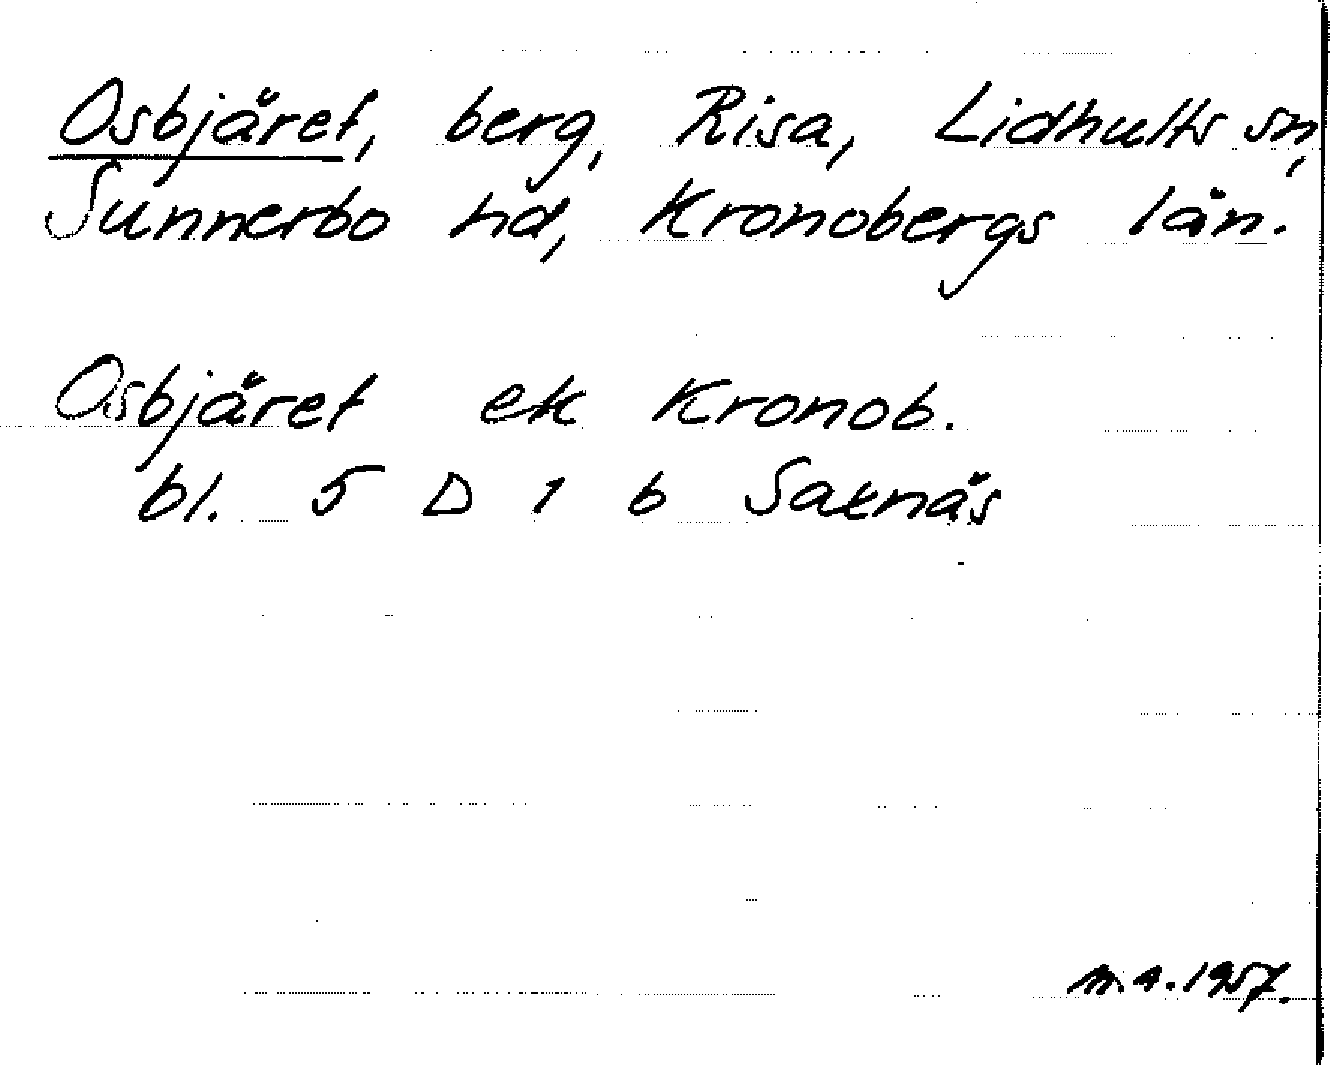 Osbjäret, berg, Risa, Lidhults sn,
Sunnerbo hd, Kronobergs län.
Osbjäret ek Kronob.
bl. 5 D 1 b Saxnäs
1957.